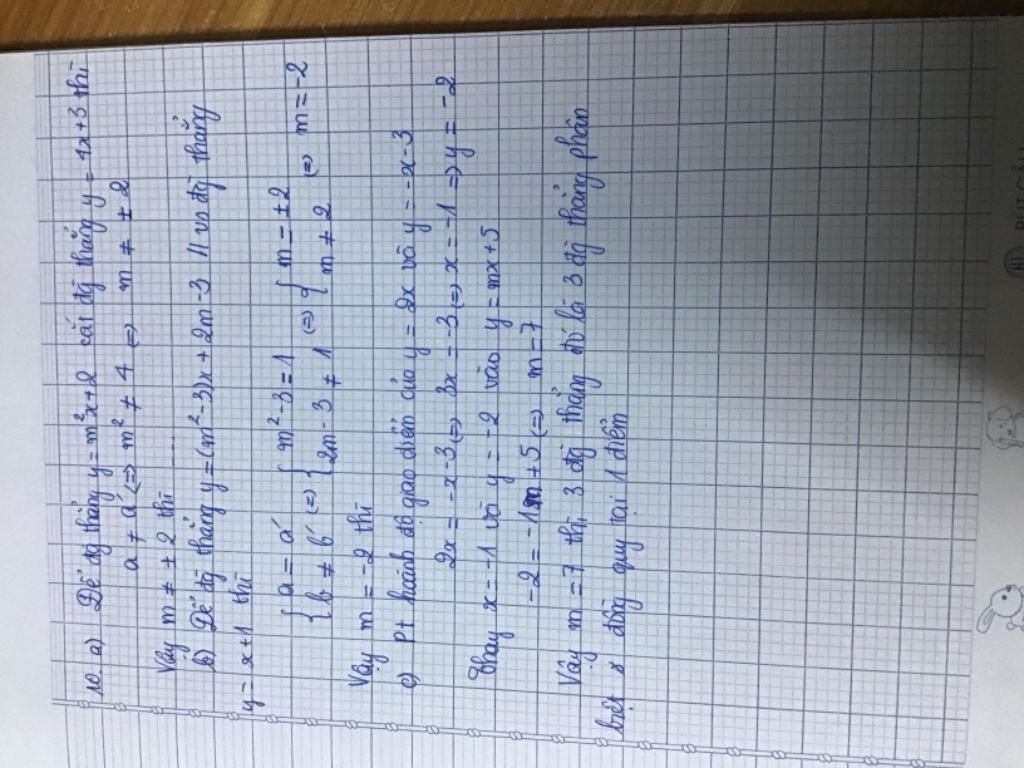 10. a) Để đg thẳng y = m²x + 2 cắt đg thẳng y = 4x + 3 thì
a ≠ a' (=) m² ≠ 4 (=) m ≠ ± 2
Vậy m ≠ ± 2 thì .......
b) Để đg thẳng y = (m² - 3)x + 2m - 3 // vs đg thẳng
y = x + 1 thì
{ a = a' (=) { m² - 3 = 1 (=) { m = ± 2 (=) m = -2
{ b ≠ b' { 2m - 3 ≠ 1 { m ≠ 2
Vậy m = -2 thì
c) Pt hoành độ giao điểm của y = 2x và y = -x - 3
2x = -x - 3 (=) 3x = -3 (=) x = -1 => y = -2
Thay x = -1 và y = -2 vào y = mx + 5
-2 = -1m + 5 (=) m = 7
Vậy m = 7 thì 3 đg thẳng đó là 3 đg thẳng phân
biệt đồng quy tại 1 điểm